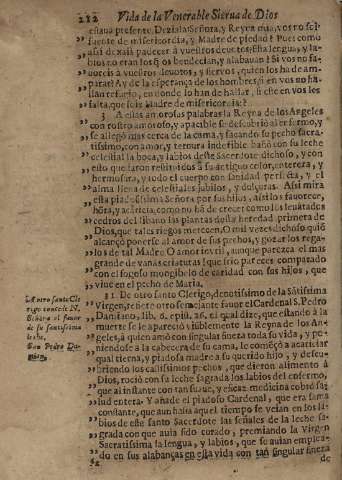 212 Vida de la Venerable Sierua de Dios
estaua presente. Dezia la Señora, y Reyna mia, vos no sois
fuente de misericordia, y Madre de piedad? Pues como
assi dexais padecer à vuestros deuotos? Esta lengua, y la-
bios no eran los q̃ os bendecian, y alabauan? Si vos no fa-
uoreceis à vuestros deuotos, y sieruos, quien los ha de am-
parar? Ay de la esperança de los hombres, si en vos no ha-
llan refugio, en donde lo han de hallar, si este en vos les
falta, que sois Madre de misericordia?
3 A estas amorosas palabras la Reyna de los Angeles
con rostro amoroso, y apacible se descubriò al enfermo, y
se allegò mas cerca de la cama, y sacando su pecho sacra-
tissimo, con amor, y ternura indecible bañò con su leche
celestial la boca, y labios deste Sacerdote dichoso, y con
esto que faron restituidos à su antiguo color, entereza, y
hermosura, y todo el cuerpo con sanidad perfecta, y el
alma llena de celestiales jubilos, y dulçuras. Assi mira
esta piadosissima Señora por sus hijos, assi los fauorece,
honra, y acaricia, como no ha de crecer como los leuãtados
cedros del libano las plantas desta heredad primera de
Dios, que tales riegos merecen. O mil vezes dichoso quiẽ
alcançò ponerse al amor de sus pechos, y gozar los rega-
los de tal Madre O amorios vil, aunque parezca el mas
grande de vanas criaturas! que frio pareces comparado
con el fogoso mongibelo de caridad con sus hijos, que
viue en el pecho de Maria.
31 De otro santo Clerigo, deuotissimo de la Sãtissima
Virgen, refiere otro semejante fauor el Cardenal S. Pedro
Damiano, lib. 6. epist. 26. el qual dize, que estando à la
muerte se le apareciò visiblemente la Reyna de los An-
geles, à quien amò con singular fineza toda su vida, y po-
niendose à la cabecera de su cama, le començò à acariciar
qual tierna, y piadosa madre à su querido hijo, y descu-
briendo los castissimos pechos, que dieron alimento à
Dios, rociò con su leche sagrada los labios del enfermo,
que al instante con tan suaue, y eficaz medicina cobrò sa-
lud entera. Y añade el piadoso Cardenal, que era fama
constante, que aun hasta aquel tiempo se veian en los la-
bios de este santo Sacerdote las señales de la leche sa-
grada con que auia sido curado, premiando la Virgen
Sacratissima la lengua, y labios, que se auian emplea-
do en sus alabanças en esta vida con tan singular fineza
de
A otro santo Cle-
rigo
hizo el fauor
de su santissima
leche.
San Pedro Da-
miano.